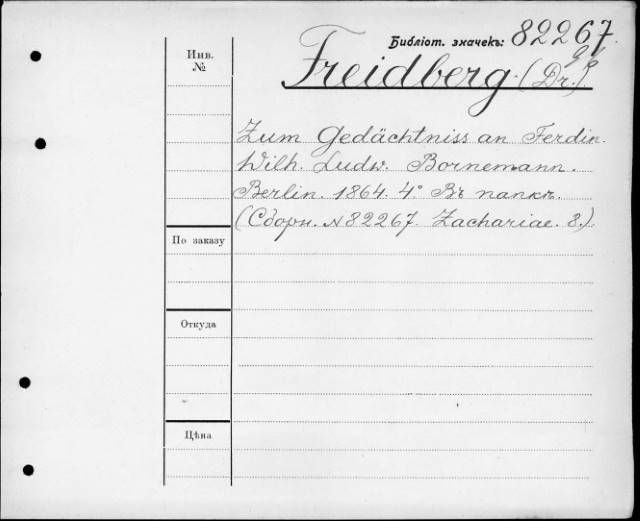 Библіот. значекъ: 82267.
Инв. №
Freidberg. (Dr.).
Zum Gedächtniss an Ferdin.
Wilh. Ludw. Bornemann.
Berlin. 1864. 4° Въ папкѣ.
(Сборн. №82267. Zachariae. 8.)
По заказу
Откуда
Цѣна